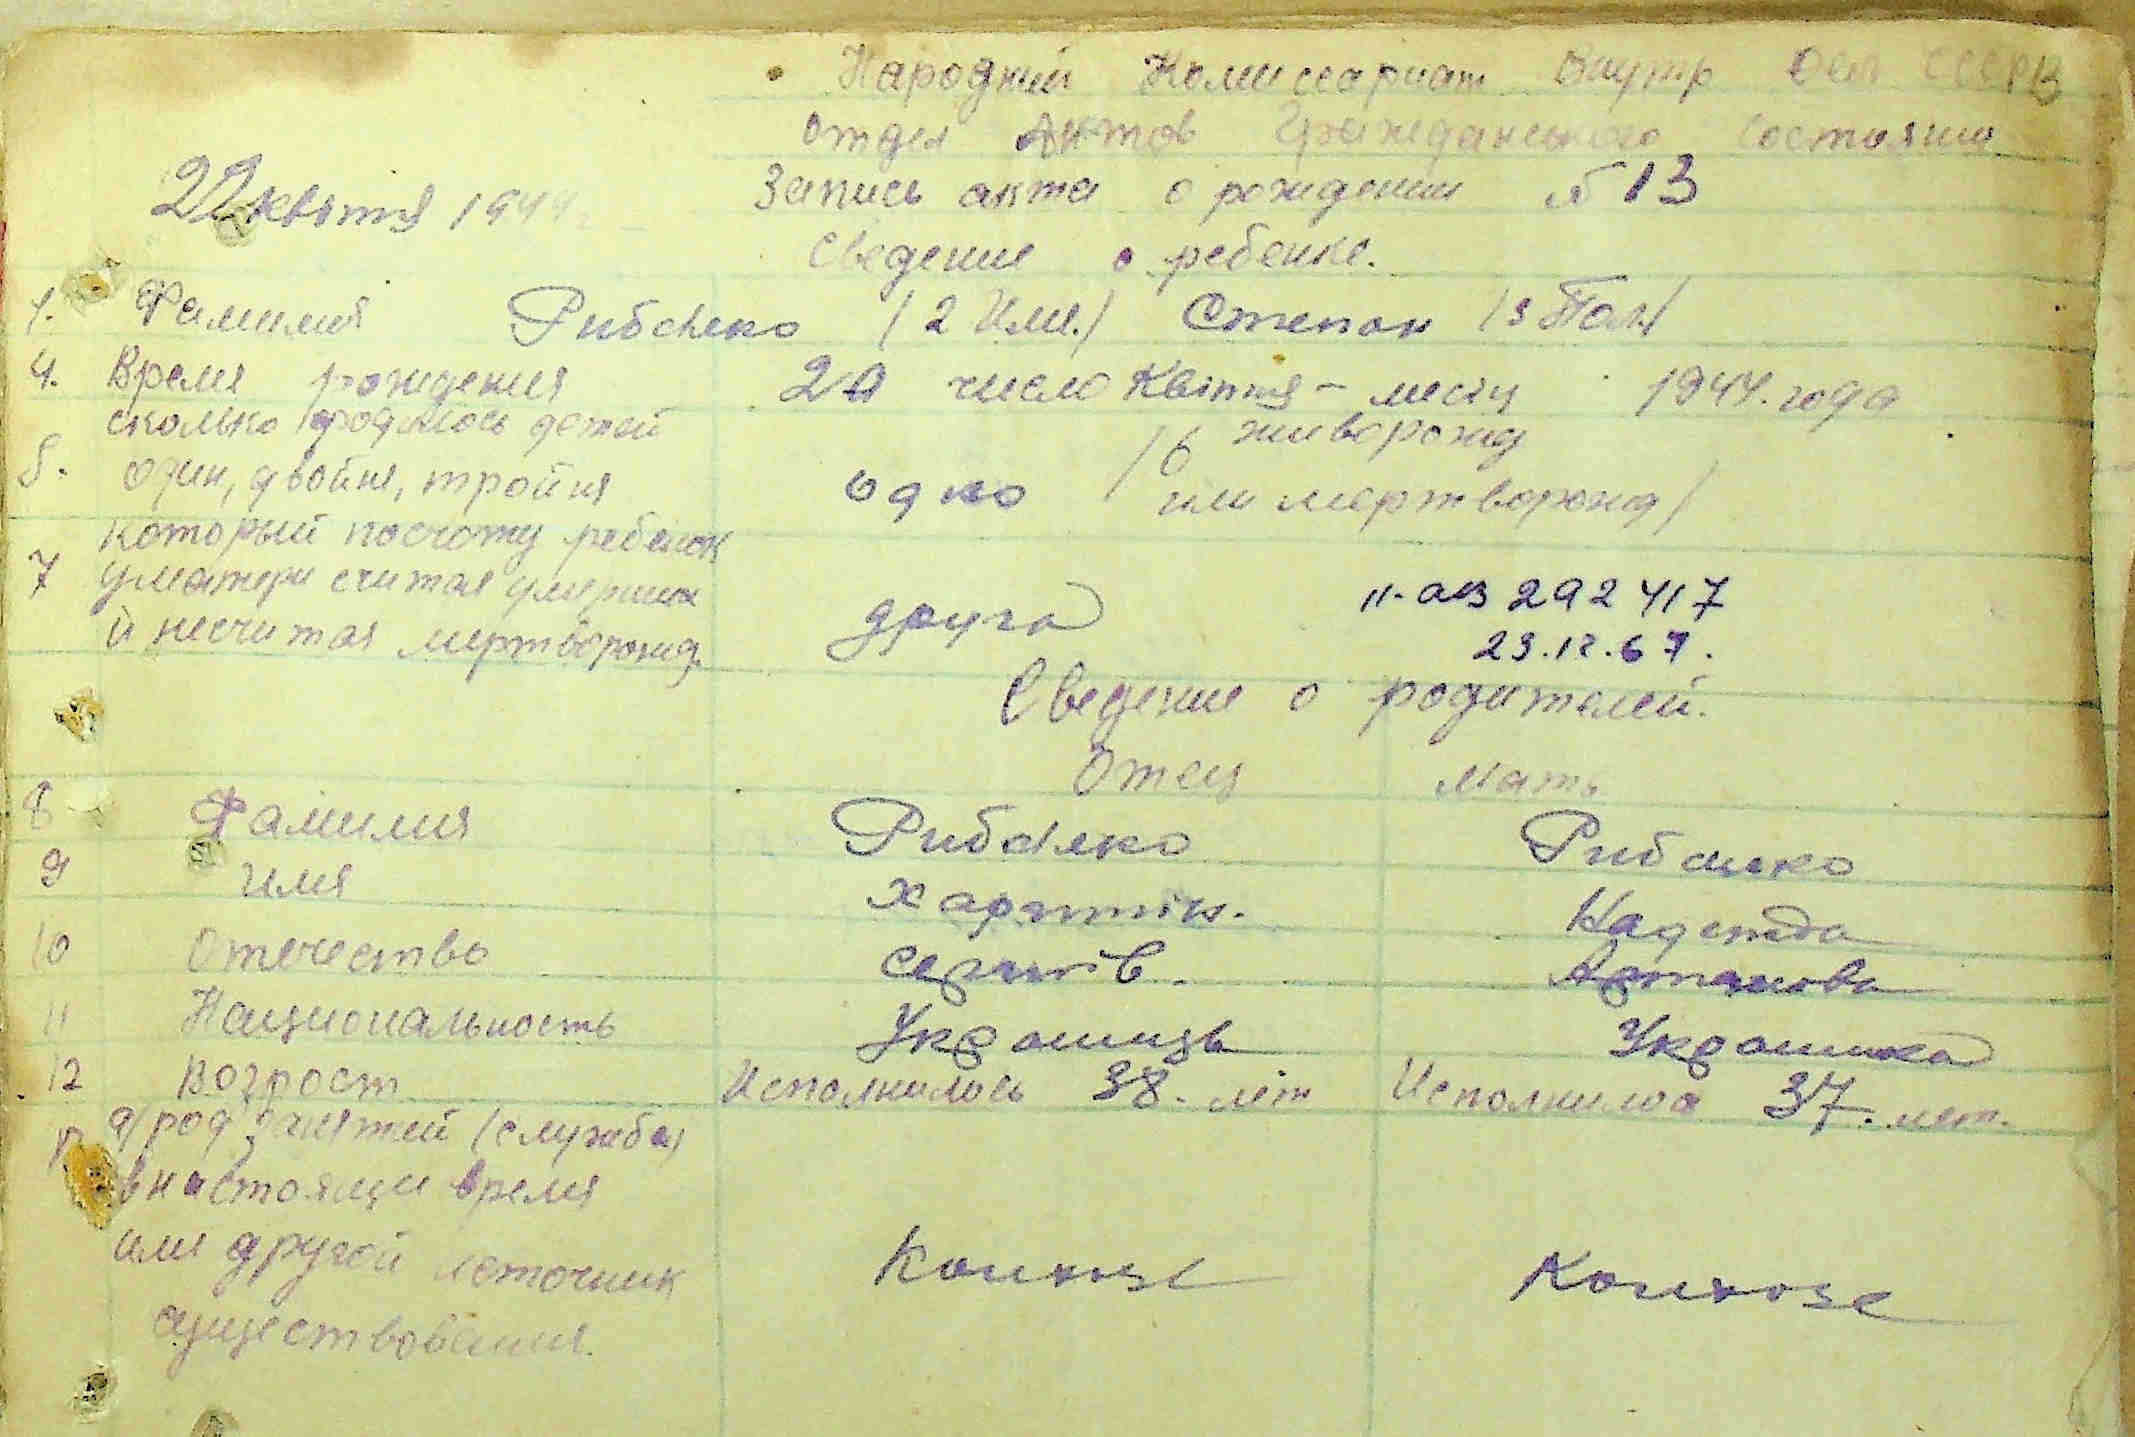 Народний Комиссариат Внутр Дел СССР
отдел Актов Гражданського Состояния
22 квітня 1944 г. Запись акта о рождении № 13
Сведение о ребенке.
1. Фамилия Рибченко (2 Имя.) Степан (3 Пол)
4. Время рождения 20 число Квітня - месіц 1944. года
сколько родилось детей (6 живорожд
5. один, двойня, тройня одно или мертворожд)
который посчоту ребенок
7 у матери считая умерших друга 11-аз 292417
и несчитая мертворожд. 29.12.67.
Сведение о родителей.
Отец Мать
8 Фамилия Рибченко Рибченко
9 Имя Харитін. Надежда
10 Отечество Сергіїв. Артамова
11 Национальность Українць Українка
12 Возрост Исполнилось 38. лет Исполнилса 37. лет.
а) род занятей (служба)
в настоящи время
или другой источник Колхозе Колхозе
существования.